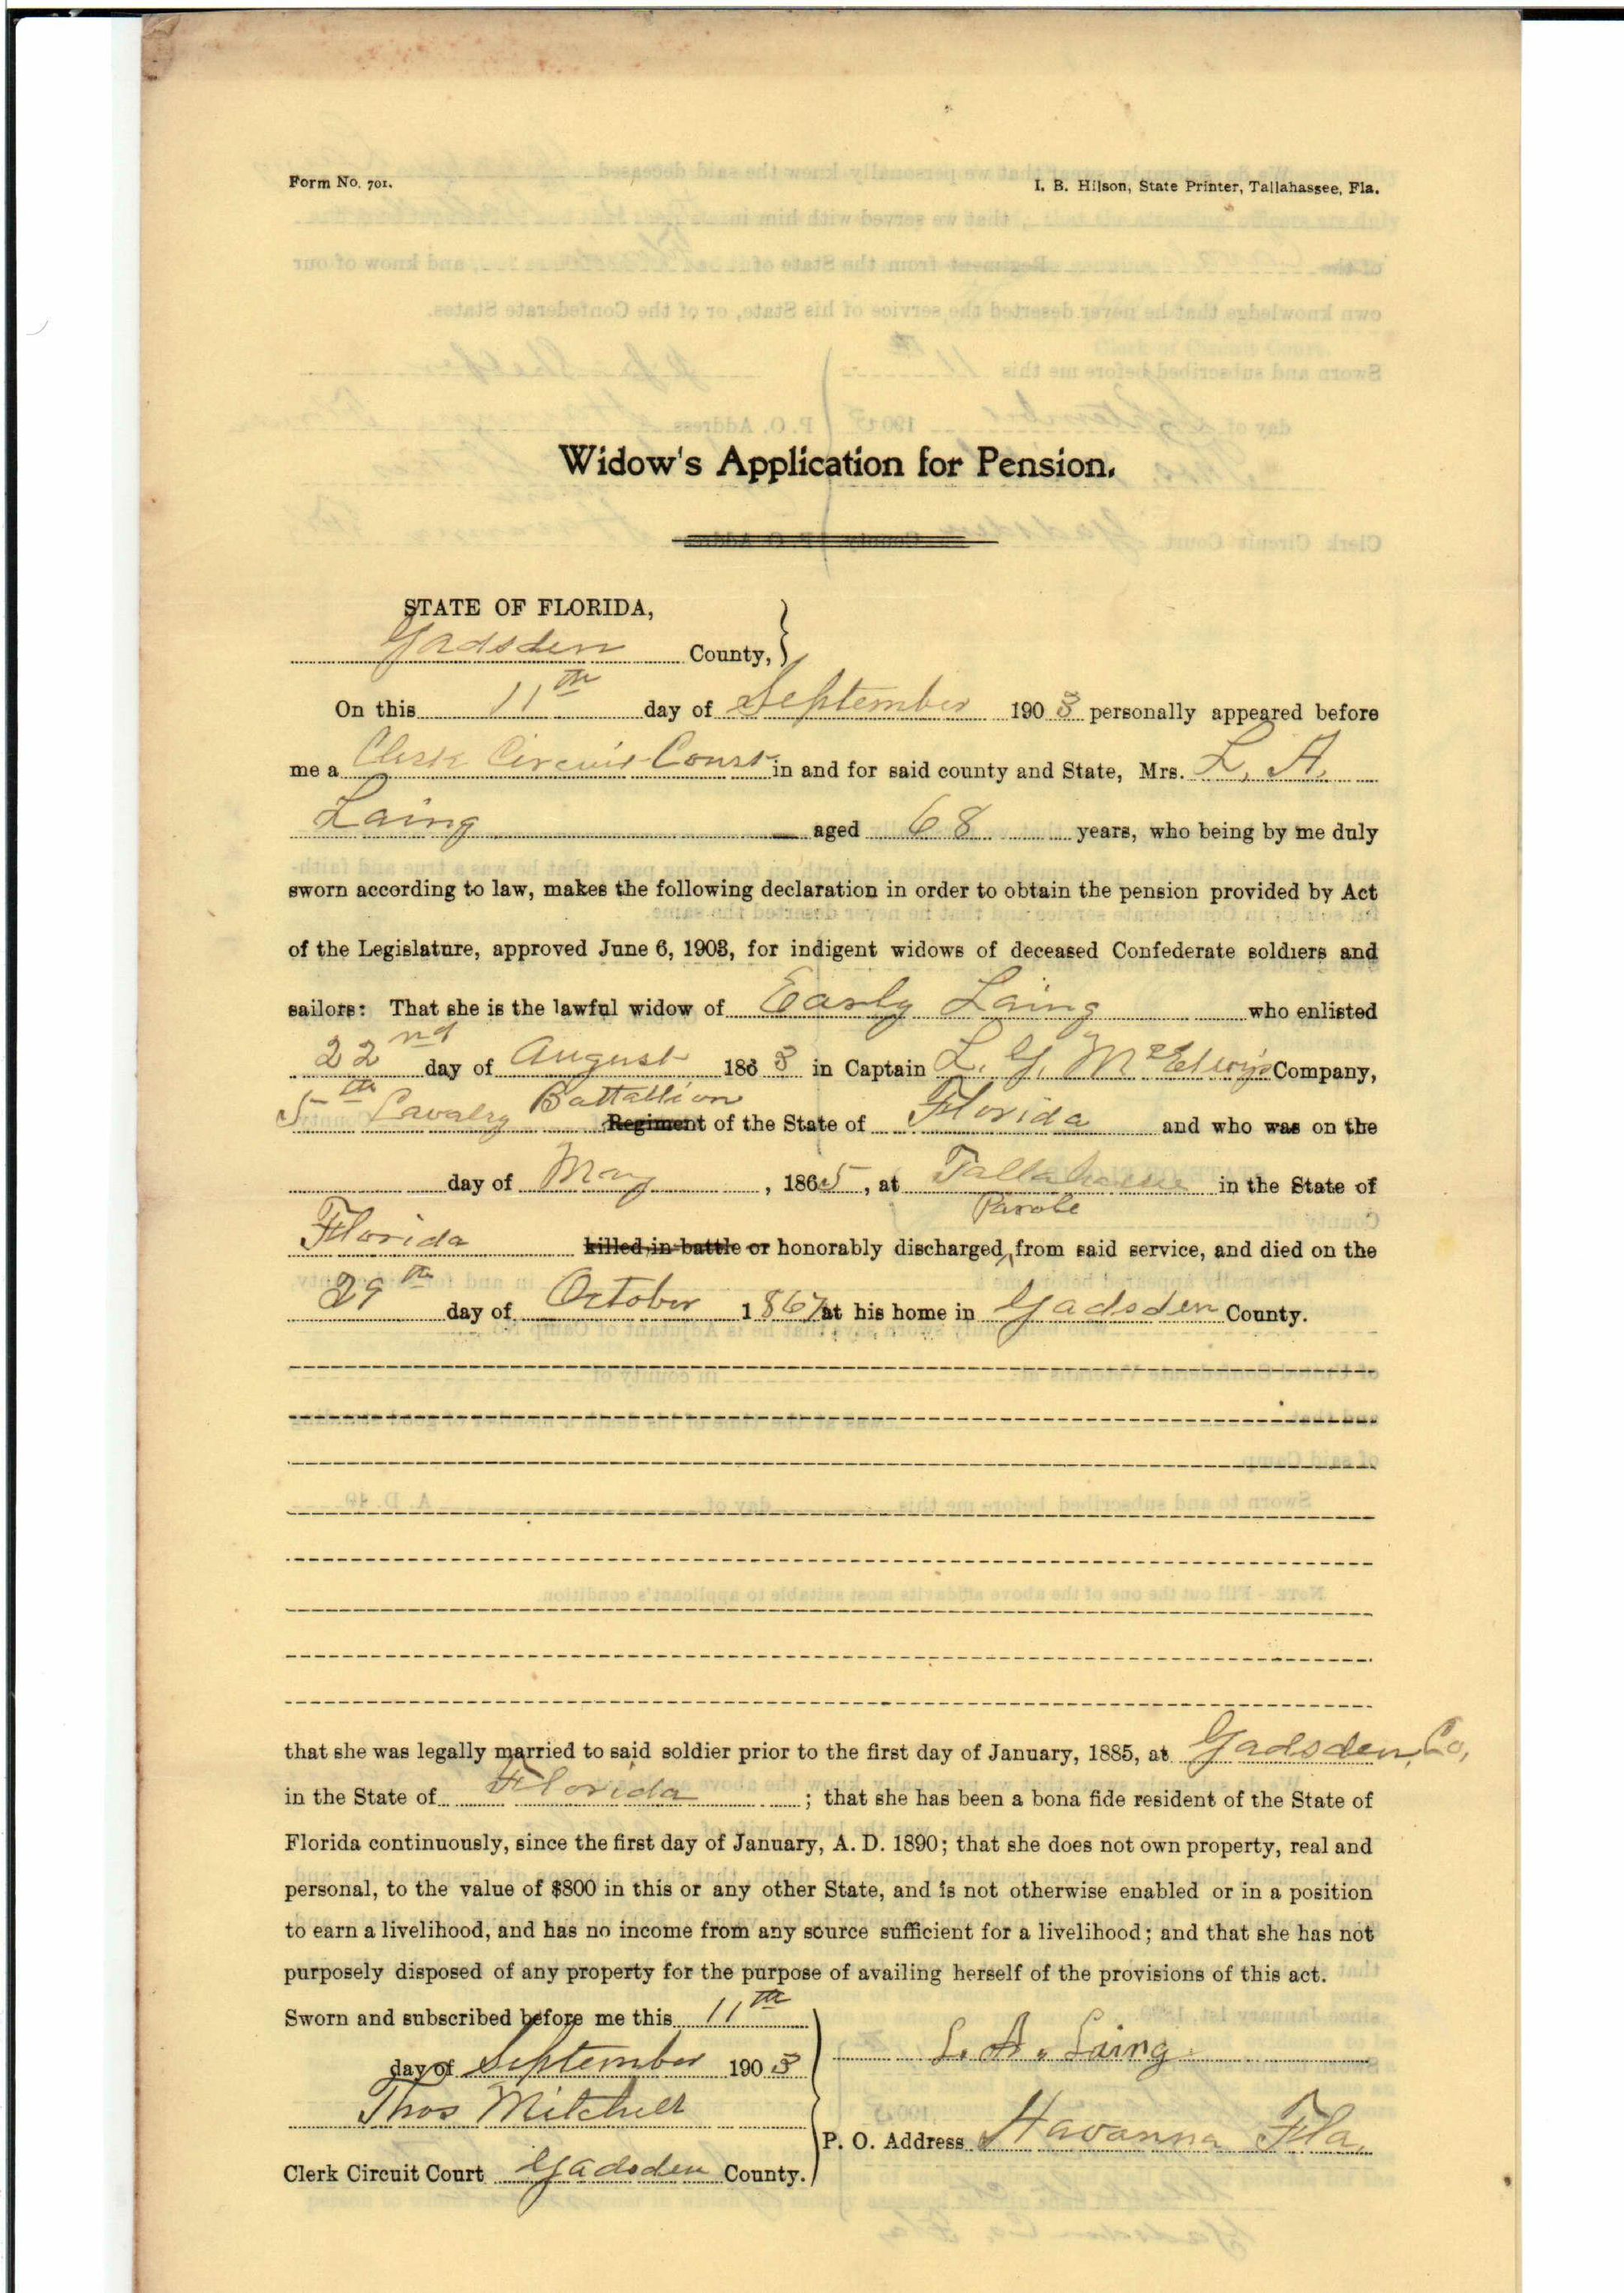 Form No. 701. I. B. Hilson, State Printer, Tallahassee, Fla.
Widow's Application for Pension.
STATE OF FLORIDA,
Gadsden County,
On this 11th day of September 1903 personally appeared before
me a Clerk Circuit Court in and for said county and State, Mrs. L. A.
Laing aged 68 years, who being by me duly
sworn according to law, makes the following declaration in order to obtain the pension provided by Act
of the Legislature, approved June 6, 1903, for indigent widows of deceased Confederate soldiers and
sailors: That she is the lawful widow of Early Laing who enlisted
22nd day of August 1863 in Captain L. G. Company,
5th Cavalry Battallion Regiment of the State of Florida and who was on the
day of May, 1865, at Tallahassee in the State of
Parole
Florida killed in battle or honorably discharged from said service, and died on the
29th day of October 1867 at his home in Gadsden County.
that she was legally married to said soldier prior to the first day of January, 1885, at Gadsden Co,
in the State of Florida; that she has been a bona fide resident of the State of
Florida continuously, since the first day of January, A. D. 1890; that she does not own property, real and
personal, to the value of $800 in this or any other State, and is not otherwise enabled or in a position
to earn a livelihood, and has no income from any source sufficient for a livelihood; and that she has not
purposely disposed of any property for the purpose of availing herself of the provisions of this act.
Sworn and subscribed before me this 11th
day of September 1903
L. A. Laing
Thos Mitchell
P. O. Address Havanna Fla.
Clerk Circuit Court Gadsden County.